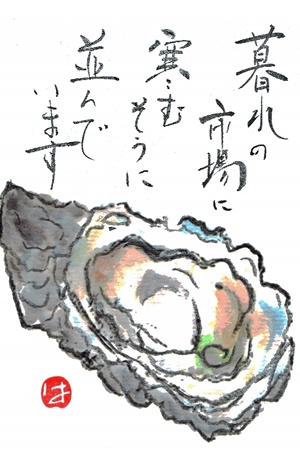 暮れの
市場に
寒むそうに
並んで
います
は